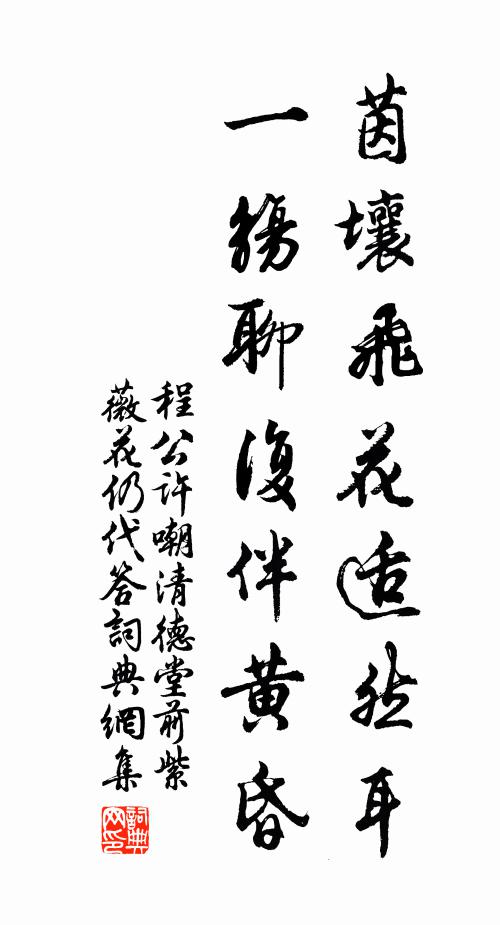 茵壤飛花适然耳
一觴聊復伴黃昏
程公許嘲清德堂前紫
薇花仍代答詞典網集
詞典
网印